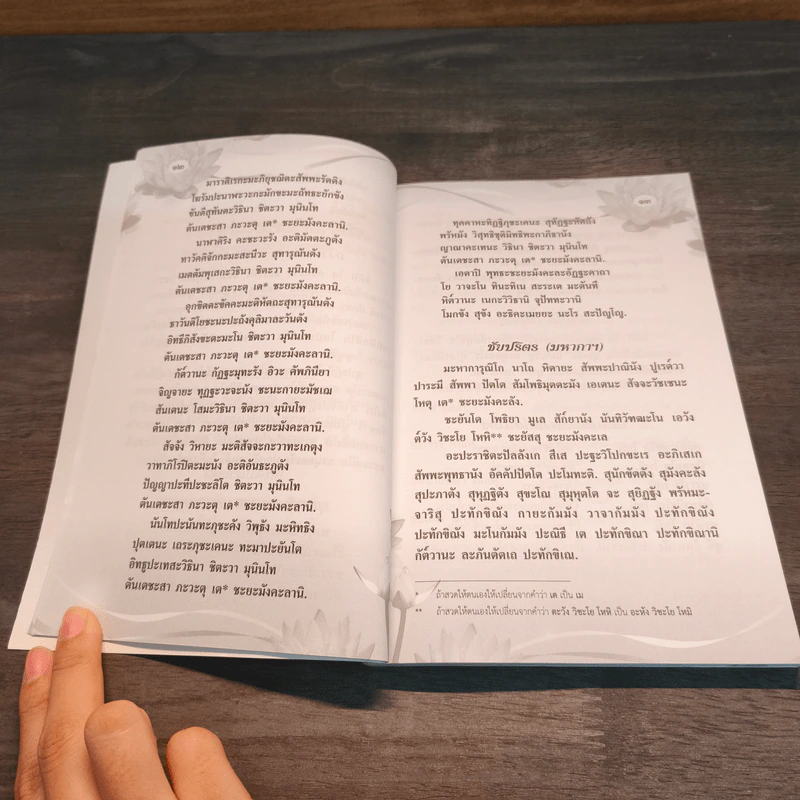 ๑๒
มาราติเรกะมะภิยุชฌิตะสัพพะรัตติง
โฆรัมปะนาฬะวะกะมักขะมะถัทธะยักขัง
ขันตีสุทันตะวิธินา ชิตะวา มุนินโท
ตันเตชะสา ภะวะตุ เต* ชะยะมังคะลานิ.
นาฬาคิริง คะชะวะรัง อะติมัตตะภูตัง
ทาวัคคิจักกะมะสะนีวะ สุทารุณันตัง
เมตตัมพุเสกะวิธินา ชิตะวา มุนินโท
ตันเตชะสา ภะวะตุ เต* ชะยะมังคะลานิ.
อุกขิตตะขัคคะมะติหัตถะสุทารุณันตัง
ธาวันติโยชะนะปะถังคุลิมาละวันตัง
อิทธีภิสังขะตะมะโน ชิตะวา มุนินโท
ตันเตชะสา ภะวะตุ เต* ชะยะมังคะลานิ.
กัต๎วานะ กัฏฐะมุทะรัง อิวะ คัพภินียา
จิญจายะ ทุฏฐะวะจะนัง ชะนะกายะมัชเฌ
สันเตนะ โสมะวิธินา ชิตะวา มุนินโท
ตันเตชะสา ภะวะตุ เต* ชะยะมังคะลานิ.
สัจจัง วิหายะ มะติสัจจะกะวาทะเกตุง
วาทาภิโรปิตะมะนัง อะติอันธะภูตัง
ปัญญาปะทีปะชะลิโต ชิตะวา มุนินโท
ตันเตชะสา ภะวะตุ เต* ชะยะมังคะลานิ.
นันโทปะนันทะภุชะคัง วิพุธัง มะหิทธิง
ปุตเตนะ เถระภุชะเคนะ ทะมาปะยันโต
อิทธูปะเทสะวิธินา ชิตะวา มุนินโท
ตันเตชะสา ภะวะตุ เต* ชะยะมังคะลานิ.
๑๓
ทุคคาหะทิฏฐิภุชะเคนะ สุทัฏฐะหัตถัง
พรัหมัง วิสุทธิชุติมิทธิพะกาภิธานัง
ญาณาคะเทนะ วิธินา ชิตะวา มุนินโท
ตันเตชะสา ภะวะตุ เต* ชะยะมังคะลานิ.
เอตาปิ พุทธะชะยะมังคะละอัฏฐะคาถา
โย วาจะโน ทินะทิเน สะระเต มะตันที
หิต๎วานะ เนกะวิวิธานิ จุปัททะวานิ
โมกขัง สุขัง อะธิคะเมยยะ นะโร สะปัญโญ.
ชัยปริตร (มหากาฯ)
มะหาการุณิโก นาโถ หิตายะ สัพพะปาณินัง ปูเรต๎วา
ปาระมี สัพพา ปัตโต สัมโพธิมุตตะมัง เอเตนะ สัจจะวัชเชนะ
โหตุ เต* ชะยะมังคะลัง.
ชะยันโต โพธิยา มูเล สัก๎ยานัง นันทิวัฑฒะโน เอวัง
ต๎วัง วิชะโย โหหิ** ชะยัสสุ ชะยะมังคะเล
อะปะราชิตะปัลลังเก สีเส ปะฐะวิโปกขะเร อะภิเสเก
สัพพะพุทธานัง อัคคัปปัตโต ปะโมทะติ. สุนักขัตตัง สุมังคะลัง
สุปะภาตัง สุหุฏฐิตัง สุขะโณ สุมุหุตโต จะ สุยิฏฐัง พรัหมะ-
จาริสุ ปะทักขิณัง กายะกัมมัง วาจากัมมัง ปะทักขิณัง
ปะทักขิณัง มะโนกัมมัง ปะณิธี เต ปะทักขิณา ปะทักขิณานิ
กัต๎วานะ ละภันตัตเถ ปะทักขิเณ.
* ถ้าสวดให้ตนเองให้เปลี่ยนจากคำว่า เต เป็น เม
** ถ้าสวดให้ตนเองให้เปลี่ยนจากคำว่า ตะวัง วิชะโย โหหิ เป็น อะหัง วิชะโย โหมิ